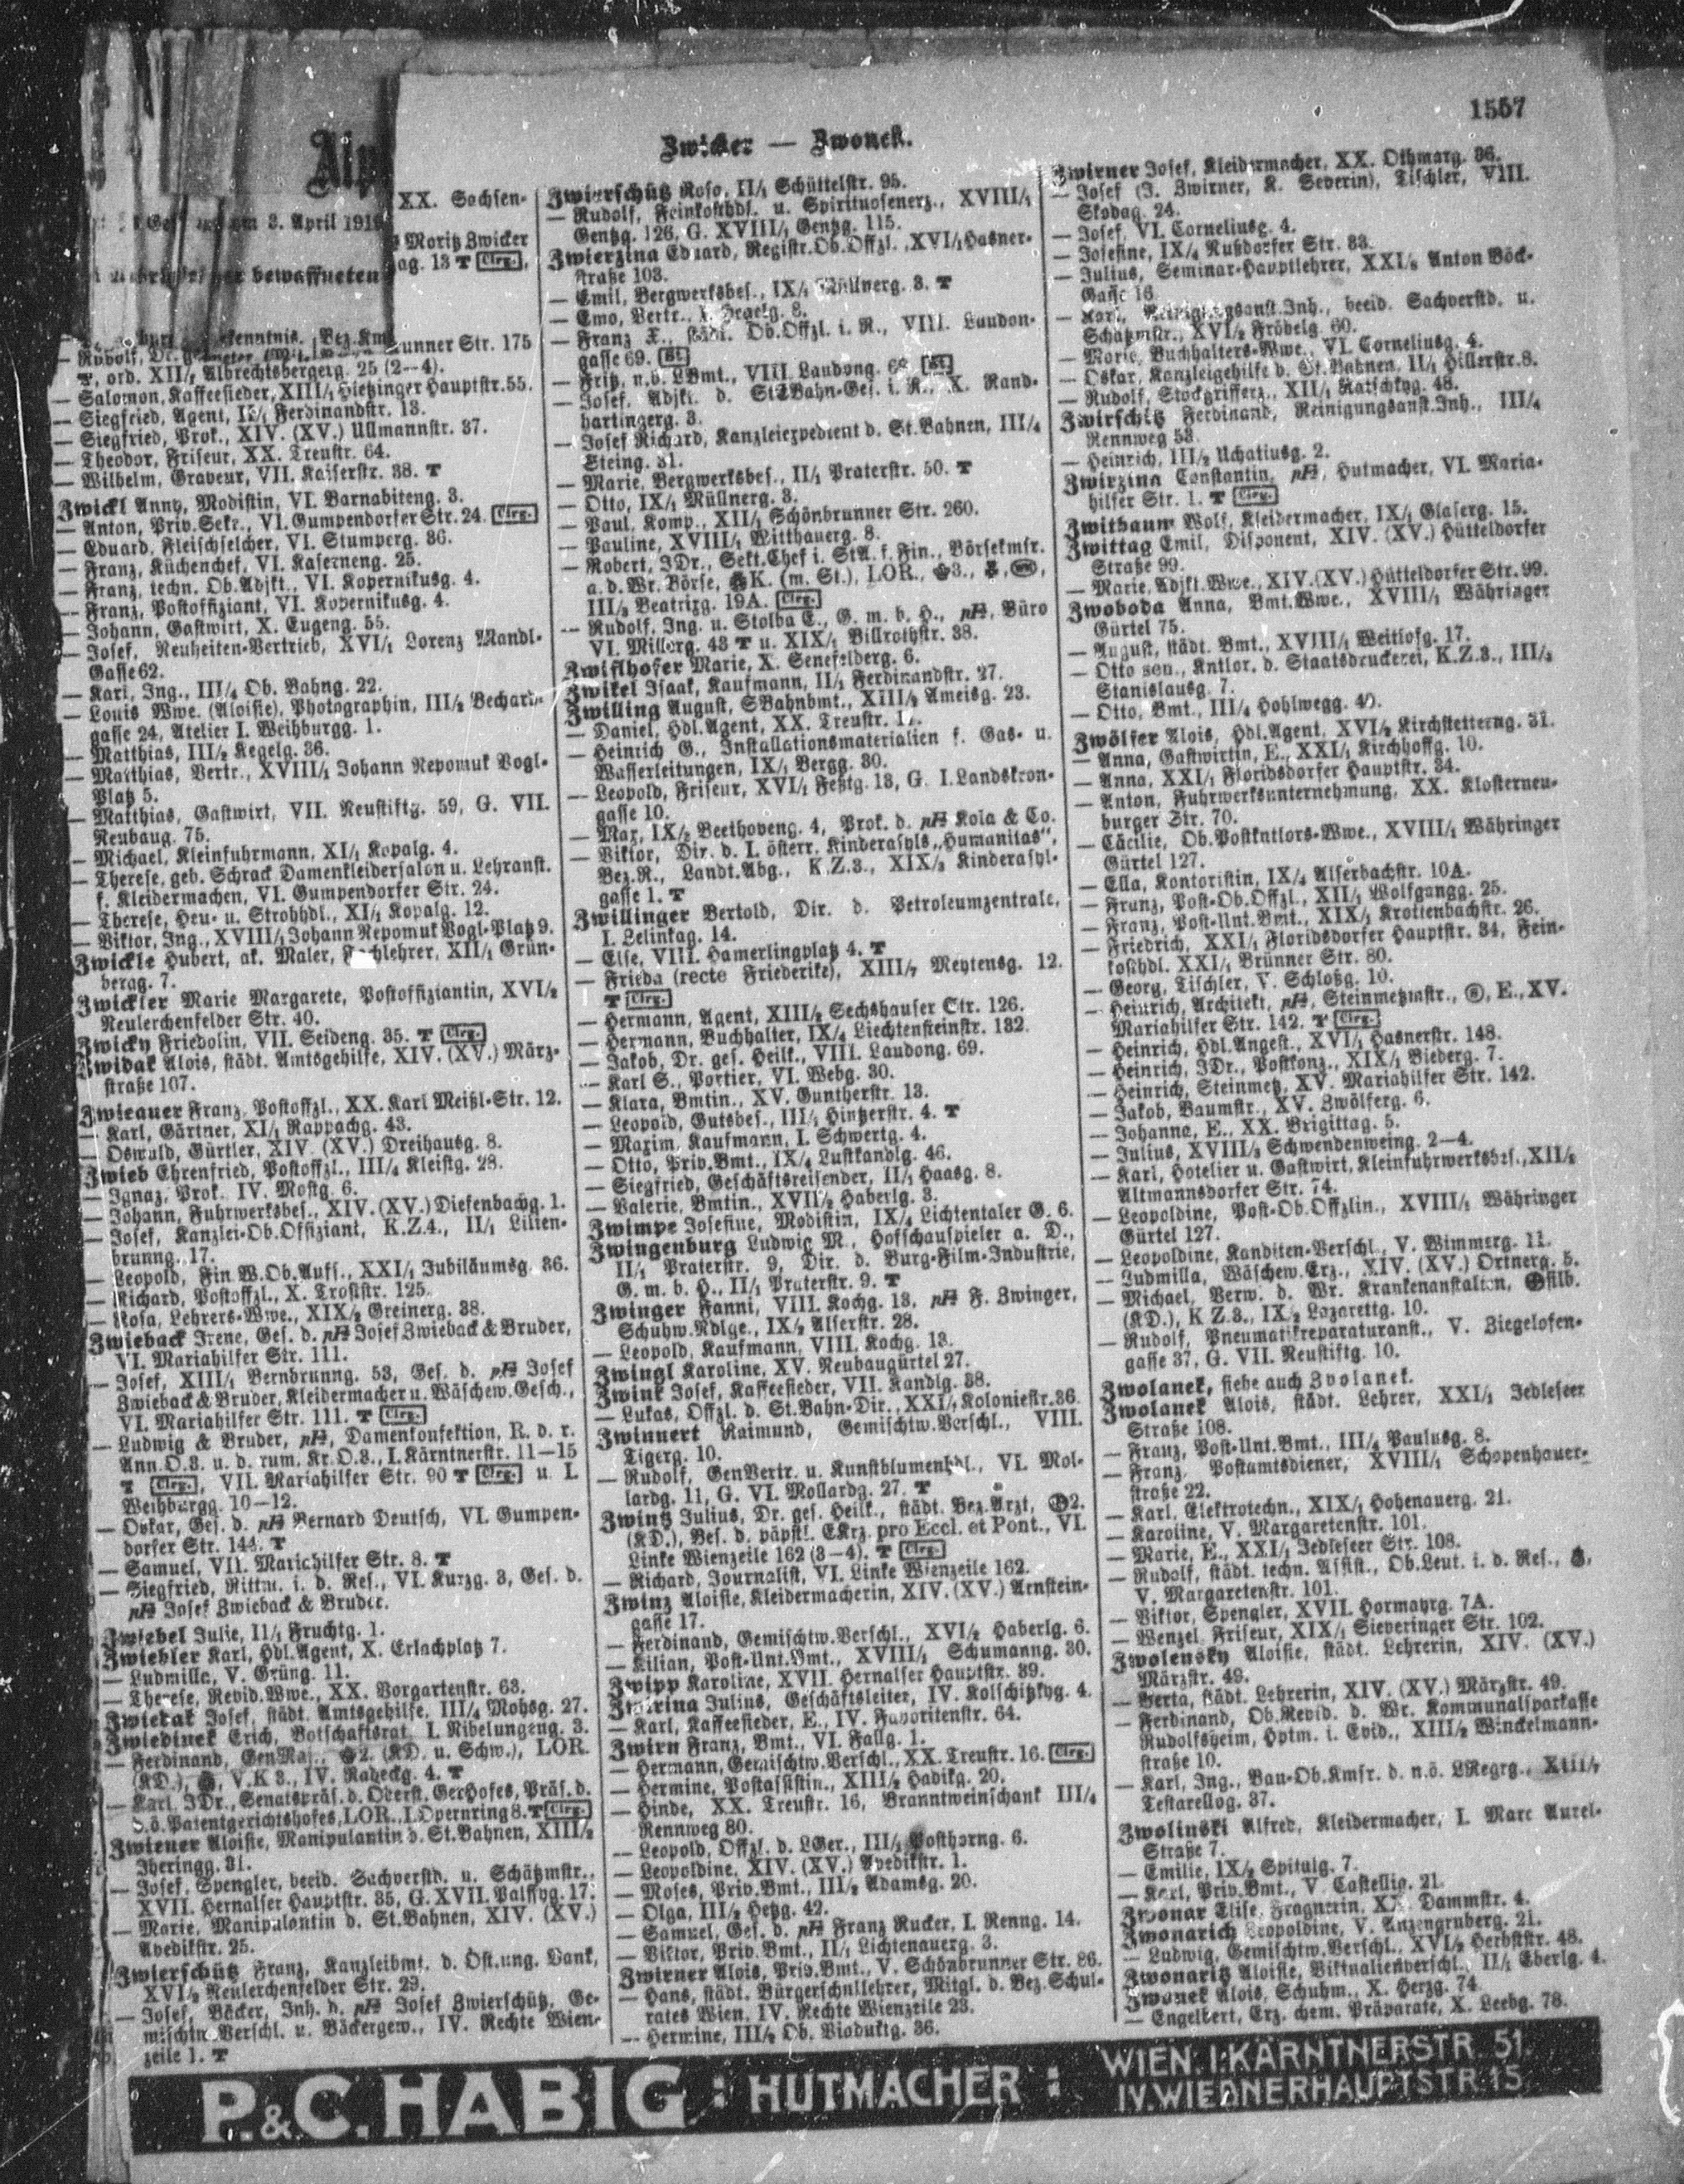 1557
Zwicker — Zwonek.
Alp
3. April 1919
bewaffneten
XX. Sachsen-
Moritz Zwicker
ag. 13 T Clrg.,
unner Str. 175
— Rudolf, Dr.
T, ord. XII/1 Albrechtsbergerg. 25 (2—4).
— Salomon, Kaffeesieder, XIII/1 Hietzinger Hauptstr. 55.
— Siegfried, Agent, II/1 Ferdinandstr. 13.
— Siegfried, Prok., XIV. (XV.) Ullmannstr. 37.
— Theodor, Friseur, XX. Treustr. 64.
— Wilhelm, Graveur, VII. Kaiserstr. 38. T
Zwickl Anny, Modistin, VI. Barnabiteng. 3.
— Anton, Priv.Sekr., VI. Gumpendorfer Str. 24. Clrg.
— Eduard, Fleischselcher, VI. Stumperg. 36.
— Franz, Küchenchef, VI. Kaserneng. 25.
— Franz, techn. Ob.Adjkt., VI. Kopernikusg. 4.
— Franz, Postoffiziant, VI. Kopernikusg. 4.
— Johann, Gastwirt, X. Eugeng. 55.
— Josef, Neuheiten-Vertrieb, XVI/1 Lorenz Mandl-
Gasse 62.
— Karl, Ing., III/4 Ob. Bahng. 22.
— Louis Wwe. (Aloisie), Photographin, III/2 Bechard-
gasse 24, Atelier I. Weihburgg. 1.
— Matthias, III/2 Kegelg. 36.
— Matthias, Vertr., XVIII/1 Johann Nepomuk Vogl-
Platz 5.
— Matthias, Gastwirt, VII. Neustiftg. 59, G. VII.
Neubaug. 75.
— Michael, Kleinfuhrmann, XI/1 Kopalg. 4.
— Therese, geb. Schrack Damenkleidersalon u. Lehranst.
f. Kleidermachen, VI. Gumpendorfer Str. 24.
— Therese, Heu- u. Strohhdl., XI/1 Kopalg. 12.
— Viktor, Ing., XVIII/1 Johann Nepomuk Vogl-Platz 9.
Zwickle Hubert, ak. Maler, Fachlehrer, XII/1 Grün-
berg. 7.
Zwickler Marie Margarete, Postoffiziantin, XVI/2
Neulerchenfelder Str. 40.
Zwicky Friedolin, VII. Seideng. 35. T Clrg.
Zwidak Alois, städt. Amtsgehilfe, XIV. (XV.) März-
straße 107.
Zwieauer Franz, Postoffzl., XX. Karl Meißl-Str. 12.
— Karl, Gärtner, XI/1 Rappachg. 43.
— Oswald, Gürtler, XIV. (XV.) Dreihausg. 8.
Zwieb Ehrenfried, Postoffzl., III/4 Kleistg. 28.
— Ignaz, Prok. IV. Mostg. 6.
— Johann, Fuhrwerksbes., XIV. (XV.) Diefenbachg. 1.
— Josef, Kanzlei-Ob.Offiziant, K.Z.4., II/1 Lilien-
brunng. 17.
— Leopold, Fin.W.Ob.Aufs., XXI/1 Jubiläumsg. 36.
— Richard, Postoffzl., X. Troststr. 125.
— Rosa, Lehrers-Wwe., XIX/2 Greinerg. 38.
Zwieback Irene, Ges. d. pH Josef Zwieback & Bruder,
VI. Mariahilfer Str. 111.
— Josef, XIII/1 Bernbrunng. 53, Ges. d. pH Josef
Zwieback & Bruder, Kleidermacher u. Wäschew.Gesch.,
VI. Mariahilfer Str. 111. T Clrg.
— Ludwig & Bruder, pH, Damenkonfektion, R. d. r.
Ann.O.3. u. d. rum. Kr.O.3., I. Kärntnerstr. 11—15
T Clrg., VII. Mariahilfer Str. 90 T Clrg. u. I.
Weihburgg. 10—12.
— Oskar, Ges. d. pH Bernard Deutsch, VI. Gumpen-
dorfer Str. 144. T
— Samuel, VII. Mariahilfer Str. 8. T
— Siegfried, Rittm. i. d. Res., VI. Kurzg. 3, Ges. d.
pH Josef Zwieback & Bruder.
Zwiebel Julie, II/1 Fruchtg. 1.
Zwiebler Karl, Hdl.Agent, X. Erlachplatz 7.
— Ludmilla, V. Grüng. 11.
— Therese, Revid.Wwe., XX. Vorgartenstr. 63.
Zwiekak Josef, städt. Amtsgehilfe, III/4 Mohsg. 27.
Zwiedinek Erich, Botschaftsrat, I. Nibelungeng. 3.
— Ferdinand, GenMaj., 2. (KD. u. Schw.), LOR.
(KD.), V.K 3., IV. Radeckg. 4. T
— Karl, JDr., Senatspräs. d. Oberst. GerHofes, Präs. d.
ö. Patentgerichtshofes, LOR., I. Opernring 8. T Clrg.
Zwiener Aloisie, Manipulantin d. St.Bahnen, XIII/2
Iheringg. 31.
— Josef, Spengler, beeid. Sachverstd. u. Schätzmstr.,
XVII. Hernalser Hauptstr. 35, G. XVII. Palffyg. 17.
— Marie, Manipulantin d. St.Bahnen, XIV. (XV.)
Avedikstr. 25.
Zwierschütz Franz, Kanzleibmt. d. Öst.ung. Bank,
XVI/2 Neulerchenfelder Str. 29.
— Josef, Bäcker, Inh. d. pH Josef Zwierschütz, Ge-
mischtw.Verschl. u. Bäckergew., IV. Rechte Wien-
zeile 1. T
Zwierschütz Rosa, II/1 Schüttelstr. 95.
— Rudolf, Feinkosthdl. u. Spirituosenerz., XVIII/1
Gentzg. 126, G. XVIII/1 Gentzg. 115.
Zwierzina Eduard, Registr.Ob.Offzl., XVI/1 Hasner-
straße 103.
— Emil, Bergwerksbes., IX/1 Müllnerg. 3. T
— Emo, Vertr., Hegelg. 8.
— Franz X., städt. Ob.Offzl. i. R., VIII. Laudon-
gasse 69. St
— Fritz, n.ö. LBmt., VIII. Laudong. 69 St
— Josef, Adjkt. d. StBahn-Ges. i. R., X. Rand-
hartingerg. 3.
— Josef Richard, Kanzleiexpedient d. St.Bahnen, III/4
Steing. 31.
— Marie, Bergwerksbes., II/1 Praterstr. 50. T
— Otto, IX/1 Müllnerg. 3.
— Paul, Komp., XII/1 Schönbrunner Str. 260.
— Pauline, XVIII/1 Witthauerg. 8.
— Robert, JDr., Sekt.Chef i. StA. f. Fin., Börsekmsr.
a. d. Wr. Börse, K. (m. St.), LOR., 3.,
III/2 Beatrixg. 19A. Clrg.
— Rudolf, Ing. u. Stolba E., G. m. b. H., pH, Büro
VI. Millerg. 43 T u. XIX/1 Billrothstr. 38.
Zwiflhofer Marie, X. Senefelderg. 6.
Zwikel Isaak, Kaufmann, II/1 Ferdinandstr. 27.
Zwilling August, SBahnbmt., XIII/2 Ameisg. 23.
— Daniel, Hdl.Agent, XX. Treustr.
— Heinrich G., Installationsmaterialien f. Gas- u.
Wasserleitungen, IX/1 Bergg. 30.
— Leopold, Friseur, XVI/1 Feßtg. 13, G. I. Landskron-
gasse 10.
— Max, IX/2 Beethoveng. 4, Prok. d. pH Kola & Co.
— Viktor, Dir. d. I. österr. Kinderasyls „Humanitas“,
Bez.R., Landt.Abg., K.Z.3., XIX/2 Kinderasyl-
gasse 1. T
Zwillinger Bertold, Dir. d. Petroleumzentrale,
I. Zelinkag. 14.
— Else, VIII. Hamerlingplatz 4. T
— Frieda (recte Friederike), XIII/7 Meytensg. 12.
T Clrg.
— Hermann, Agent, XIII/2 Sechshauser Str. 126.
— Hermann, Buchhalter, IX/4 Liechtensteinstr. 132.
— Jakob, Dr. ges. Heilk., VIII. Laudong. 69.
— Karl S., Portier, VI. Webg. 30.
— Klara, Bmtin., XV. Guntherstr. 13.
— Leopold, Gutsbes., III/1 Hintzerstr. 4. T
— Maxim, Kaufmann, I. Schwertg. 4.
— Otto, Priv.Bmt., IX/4 Lustkandlg. 46.
— Siegfried, Geschäftsreisender, II/1 Haasg. 8.
— Valerie, Bmtin., XVII/2 Haberlg. 3.
Zwimpe Josefine, Modistin, IX/4 Lichtentaler G. 6.
Zwingenburg Ludwig M., Hofschauspieler a. D.,
II/1 Praterstr. 9, Dir. d. Burg-Film-Industrie,
G. m. b. H., II/1 Praterstr. 9. T
Zwinger Fanni, VIII. Kochg. 13, pH F. Zwinger,
Schuhw.Ndlge., IX/2 Alserstr. 28.
— Leopold, Kaufmann, VIII. Kochg. 13.
Zwingl Karoline, XV. Neubaugürtel 27.
Zwink Josef, Kaffeesieder, VII. Kandlg. 38.
— Lukas, Offzl. d. St.Bahn-Dir., XXI/1 Koloniestr. 36.
Zwinnert Raimund, Gemischtw.Verschl., VIII.
Tigerg. 10.
— Rudolf, GenVertr. u. Kunstblumenhdl., VI. Mol-
lardg. 11, G. VI. Mollardg. 27. T
Zwintz Julius, Dr. ges. Heilk., städt. Bez.Arzt, 2.
(KD.), Bes. d. päpstl. EKrz. pro Eccl. et Pont., VI.
Linke Wienzeile 162 (3—4). T Clrg.
— Richard, Journalist, VI. Linke Wienzeile 162.
Zwinz Aloisie, Kleidermacherin, XIV. (XV.) Arnstein-
gasse 17.
— Ferdinand, Gemischtw.Verschl., XVI/2 Haberlg. 6.
— Kilian, Post-Unt.Bmt., XVIII/1 Schumanng. 30.
Zwipp Karoline, XVII. Hernalser Hauptstr. 39.
Julius, Geschäftsleiter, IV. Kolschitzkyg. 4.
— Karl, Kaffeesieder, E., IV. Favoritenstr. 64.
Zwirn Franz, Bmt., VI. Fallg. 1.
— Hermann, Gemischtw.Verschl., XX. Treustr. 16. Clrg.
— Hermine, Postassistin., XIII/2 Hadikg. 20.
— Hinde, XX. Treustr. 16, Branntweinschank III/4
Rennweg 80.
— Leopold, Offzl. d. LGer., III/1 Posthorng. 6.
— Leopoldine, XIV. (XV.) Avedikstr. 1.
— Moses, Priv.Bmt., III/2 Adamsg. 20.
— Olga, III/2 Hetzg. 42.
— Samuel, Ges. d. pH Franz Rucker, I. Renng. 14.
— Viktor, Priv.Bmt., II/1 Lichtenauerg. 3.
Zwirner Alois, Priv.Bmt., V. Schönbrunner Str. 86.
— Hans, städt. Bürgerschullehrer, Mitgl. d. Bez.Schul-
rates Wien, IV. Rechte Wienzeile 23.
— Hermine, III/2 Ob. Viaduktg. 36.
Zwirner Josef, Kleidermacher, XX. Othmarg. 36.
— Josef (J. Zwirner, K. Severin), Tischler, VIII.
Skodag. 24.
— Josef, VI. Corneliusg. 4.
— Josefine, IX/4 Nußdorfer Str. 83.
— Julius, Seminar-Hauptlehrer, XXI/8 Anton Böck-
Gasse 16.
— Karl, Reinigungsanst.Inh., beeid. Sachverstd. u.
Schätzmstr., XVI/2 Fröbelg. 60.
— Marie, Buchhalters-Wwe., VI. Corneliusg. 4.
— Oskar, Kanzleigehilfe d. St.Bahnen, II/1 Hillerstr. 8.
— Rudolf, Stockgrifferz., XII/1 Ratschkyg. 48.
Zwirschitz Ferdinand, Reinigungsanst.Inh., III/4
Rennweg 53.
— Heinrich, III/2 Uchatiusg. 2.
Zwirzina Constantin, pH, Hutmacher, VI. Maria-
hilfer Str. 1. T Clrg.
Zwitbaum Wolf, Kleidermacher, IX/1 Glaserg. 15.
Zwittag Emil, Disponent, XIV. (XV.) Hütteldorfer
Straße 99.
— Marie, Adjkt.Wwe., XIV. (XV.) Hütteldorfer Str. 99.
Zwoboda Anna, Bmt.Wwe., XVIII/1 Währinger
Gürtel 75.
— August, städt. Bmt., XVIII/1 Weitlofg. 17.
— Otto sen., Kntlor. d. Staatsdruckerei, K.Z.3., III/3
Stanislausg. 7.
— Otto, Bmt., III/4 Hohlwegg.
Zwölfer Alois, Hdl.Agent, XVI/2 Kirchstetterng. 31.
— Anna, Gastwirtin, E., XXI/1 Kirchhoffg. 10.
— Anna, XXI/1 Floridsdorfer Hauptstr. 34.
— Anton, Fuhrwerksunternehmung, XX. Klosterneu-
burger Str. 70.
— Cäcilie, Ob.Postkntlors-Wwe., XVIII/1 Währinger
Gürtel 127.
— Ella, Kontoristin, IX/4 Alserbachstr. 10A.
— Franz, Post-Ob.Offzl., XII/1 Wolfgangg. 25.
— Franz, Post-Unt.Bmt., XIX/1 Krottenbachstr. 26.
— Friedrich, XXI/1 Floridsdorfer Hauptstr. 34, Fein-
kosthdl. XXI/1 Brünner Str. 80.
— Georg, Tischler, V. Schloßg. 10.
— Heinrich, Architekt, pH, Steinmetzmstr., E., XV.
Mariahilfer Str. 142. T Clrg.
— Heinrich, Hdl.Angest., XVI/1 Hasnerstr. 148.
— Heinrich, JDr., Postkonz., XIX/1 Biederg. 7.
— Heinrich, Steinmetz, XV. Mariahilfer Str. 142.
— Jakob, Baumstr., XV. Zwölferg. 6.
— Johanna, E., XX. Brigittag. 5.
— Julius, XVIII/3 Schwendenweing. 2—4.
— Karl, Hotelier u. Gastwirt, Kleinfuhrwerksbes., XII/2
Altmannsdorfer Str. 74.
— Leopoldine, Post-Ob.Offzlin., XVIII/1 Währinger
Gürtel 127.
— Leopoldine, Kanditen-Verschl., V. Wimmerg. 11.
— Ludmilla, Wäschew.Erz., XIV. (XV.) Ortnerg. 5.
— Michael, Verw. d. Wr. Krankenanstalten, silb.
(KD.), K.Z.3., IX/2 Lazarettg. 10.
— Rudolf, Pneumatikreparaturanst., V. Ziegelofen-
gasse 37, G. VII. Neustiftg. 10.
Zwolanek, siehe auch Zvolanek.
Zwolanek Alois, städt. Lehrer, XXI/1 Jedleseer
Straße 108.
— Franz, Post-Unt.Bmt., III/4 Paulusg. 8.
— Franz, Postamtsdiener, XVIII/1 Schopenhauer-
straße 22.
— Karl, Elektrotechn., XIX/1 Hohenauerg. 21.
— Karoline, V. Margaretenstr. 101.
— Marie, E., XXI/1 Jedleseer Str. 108.
— Rudolf, städt. techn. Assist., Ob.Leut. i. d. Res.,
V. Margaretenstr. 101.
— Viktor, Spengler, XVII. Hormayrg. 7A.
— Wenzel, Friseur, XIX/1 Sieveringer Str. 102.
Zwolensky Aloisie, städt. Lehrerin, XIV. (XV.)
Märzstr. 49.
— Berta, städt. Lehrerin, XIV. (XV.) Märzstr. 49.
— Ferdinand, Ob.Revid. d. Wr. Kommunalsparkasse
Rudolfsheim, Hptm. i. Evid., XIII/2 Winckelmann-
straße 10.
— Karl, Ing., Bau-Ob.Kmsr. d. n.ö. LRegrg., XIII/7
Testarellog. 37.
Zwolinski Alfred, Kleidermacher, I. Marc Aurel-
Straße 7.
— Emilie, IX/2 Spitalg. 7.
— Karl, Priv.Bmt., V. Castellig. 21.
Zwonar Elise, Fragnerin, XX. Dammstr. 4.
Zwonarich Leopoldine, V. Anzengruberg. 21.
— Ludwig, Gemischtw.Verschl., XVI/2 Herbststr. 48.
Zwonaritz Aloisie, Viktualienverschl., II/1 Eberlg. 4.
Zwonek Alois, Schuhm., X. Herzg. 74.
— Engelbert, Erz. chem. Präparate, X. Leebg. 78.
P. & C. HABIG : HUTMACHER :
WIEN, I. KÄRNTNERSTR. 51.
IV. WIEDNERHAUPTSTR. 15